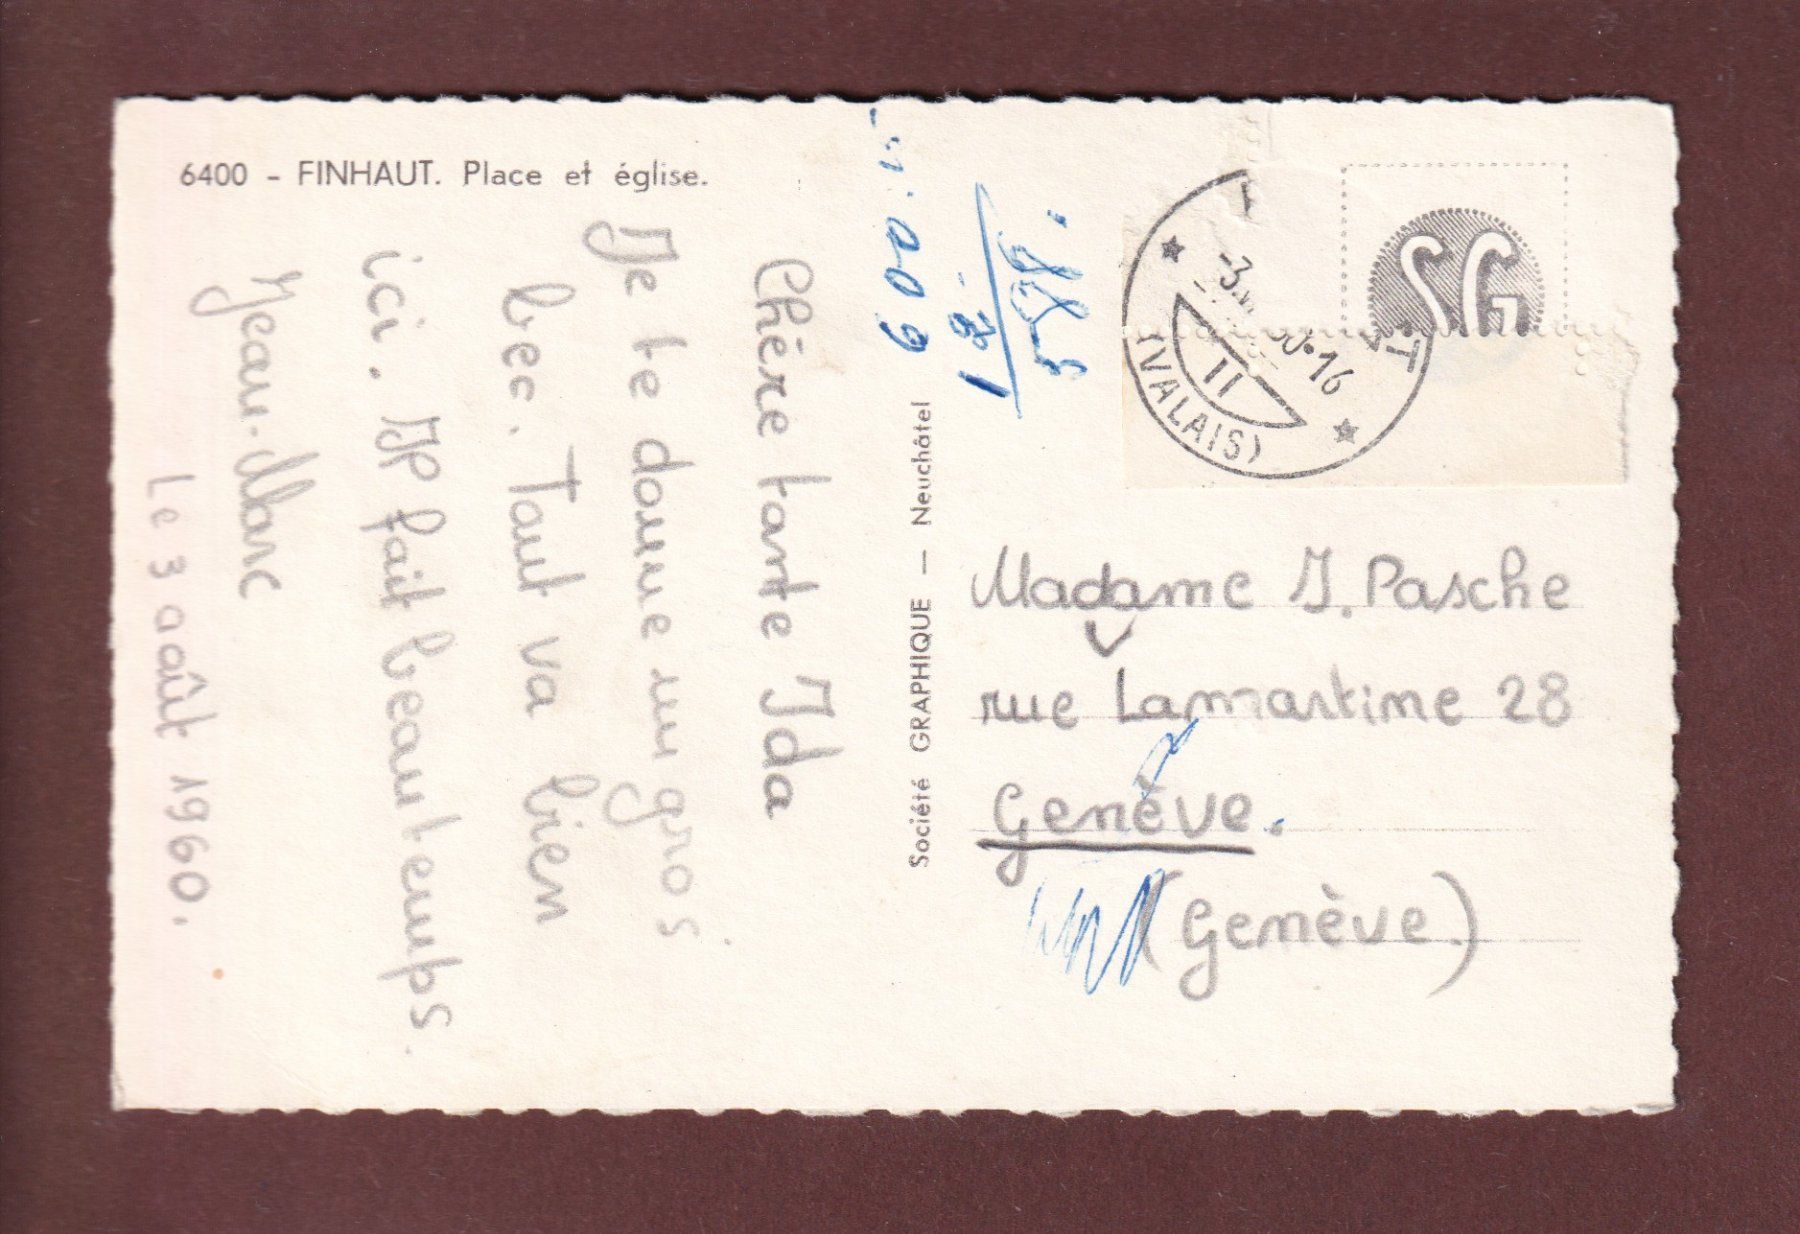 6400 - FINHAUT. Place et église.
Chère tante Ida
Je te donne un gros
bec. Tout va bien
ici. Il fait beau temps.
Jean-Marc
Le 3 août 1960.
Société GRAPHIQUE — Neuchâtel
600.
12.
588.
-3.
60·16
11
(VALAIS)
SG
Madame J. Pasche
rue Lamartine 28
Genève.
(Genève.)